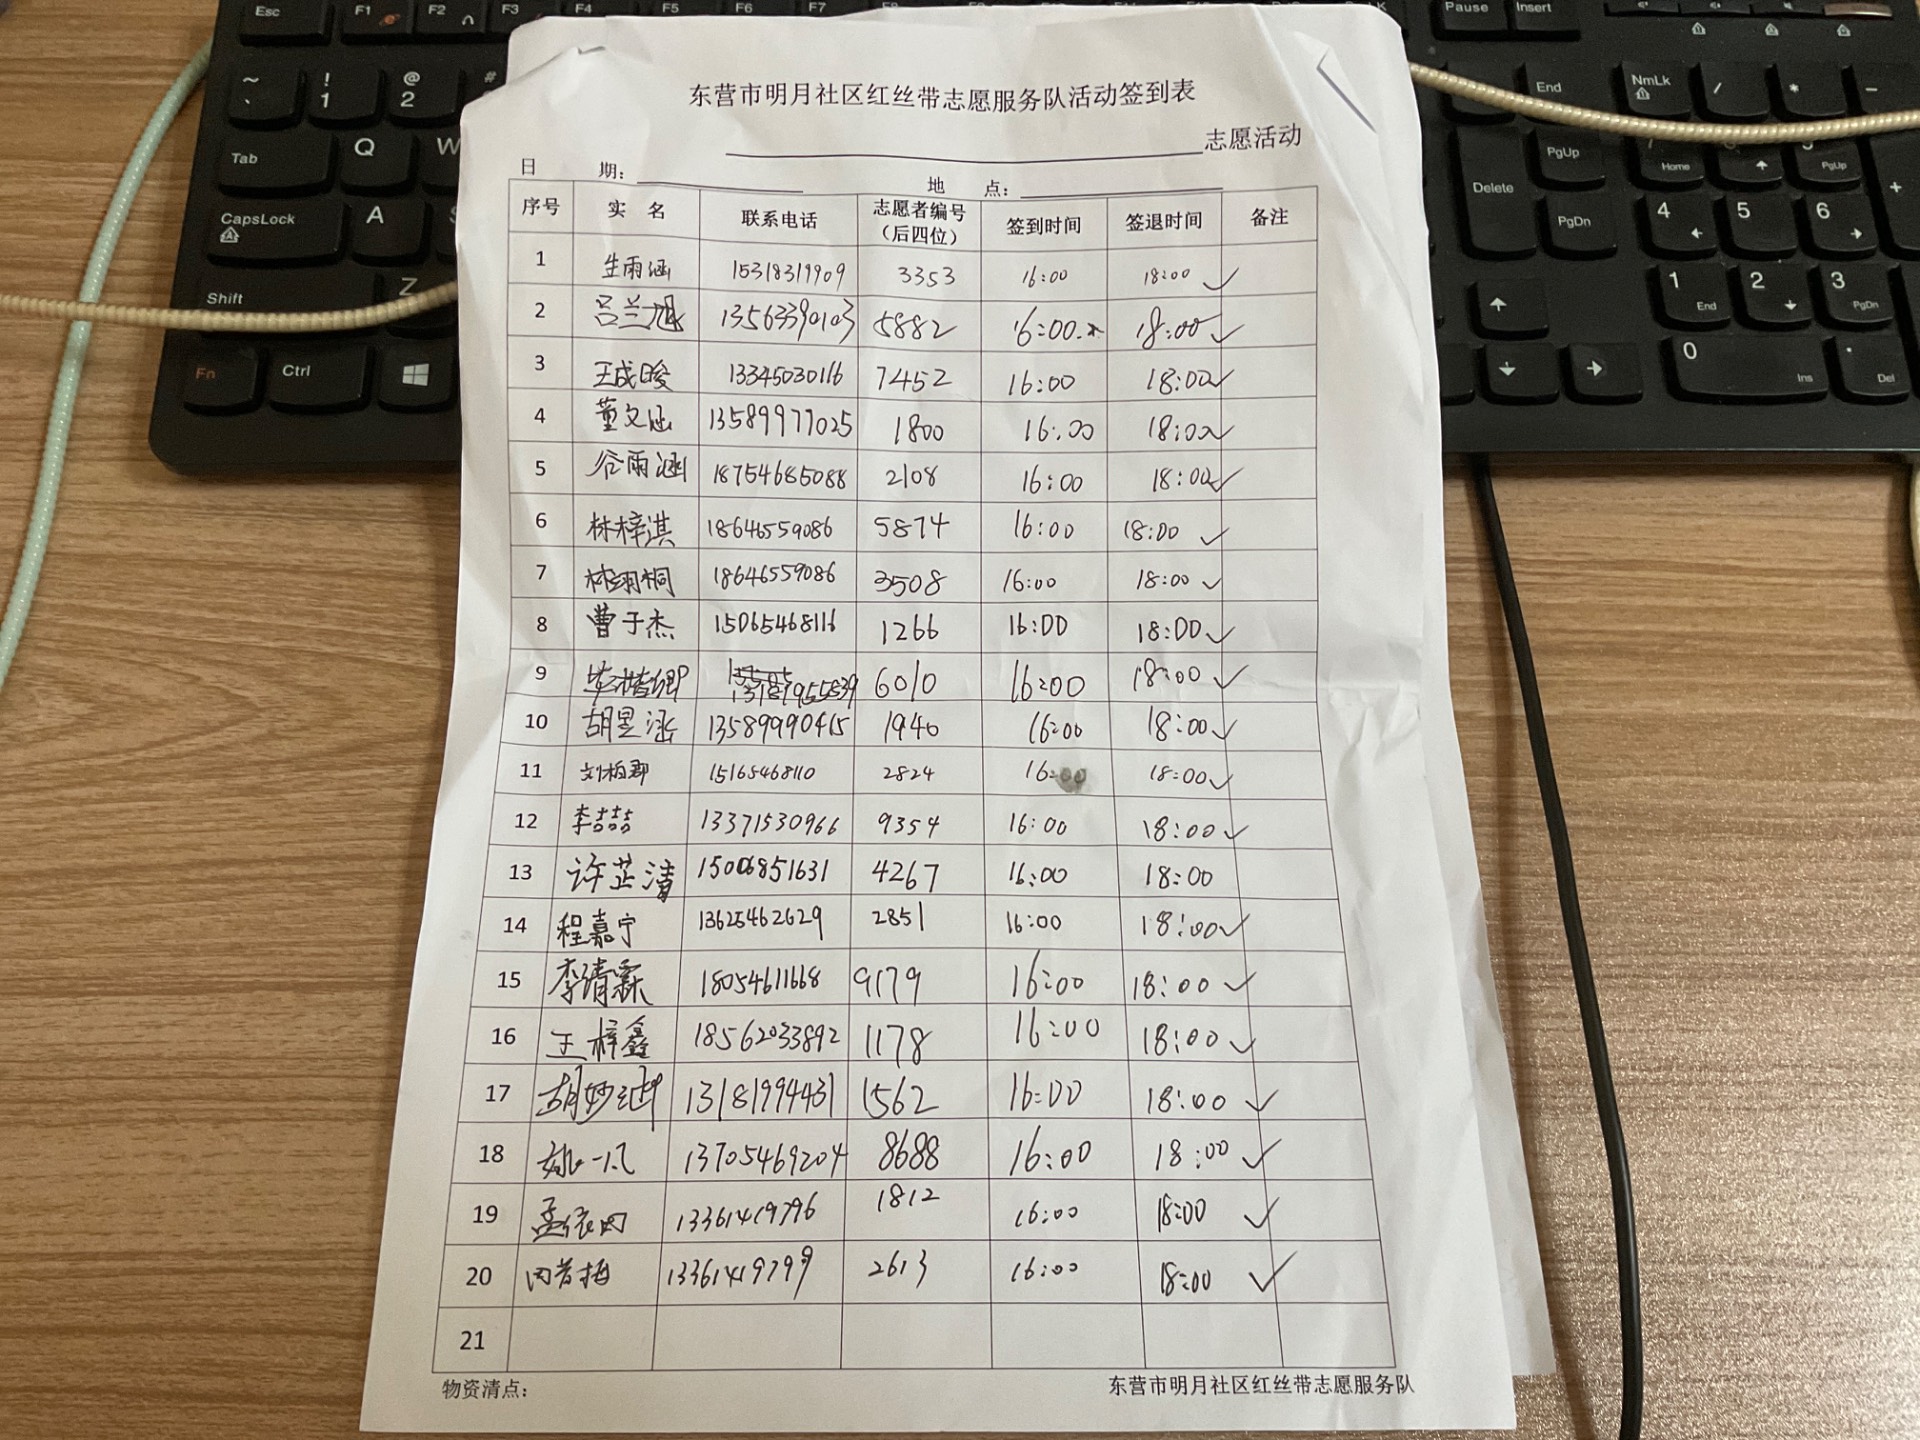 东营市明月社区红丝带志愿服务队活动签到表
志愿活动
日 期: 地 点:
序号 实 名 联系电话 志愿者编号（后四位） 签到时间 签退时间 备注
1 生雨涵 15318319909 3353 16:00 18:00 ✓
2 吕兰旭 13563390103 5882 16:00 18:00 ✓
3 王成晙 13345030116 7452 16:00 18:00 ✓
4 董文涵 13589977025 1800 16:00 18:00 ✓
5 谷雨涵 18754685088 2108 16:00 18:00 ✓
6 林梓淇 18646559086 5874 16:00 18:00 ✓
7 林翊桐 18646559086 3508 16:00 18:00 ✓
8 曹于杰 15065468116 1266 16:00 18:00 ✓
9 13181955839 6010 16:00 18:00 ✓
10 胡昱涵 13589990415 1940 16:00 18:00 ✓
11 刘柏郡 15165468110 2824 16:00 18:00 ✓
12 李喆喆 13371530966 9354 16:00 18:00 ✓
13 许芷清 15006851631 4267 16:00 18:00
14 程嘉宁 13625462629 2851 16:00 18:00 ✓
15 李清霖 18054611668 9179 16:00 18:00 ✓
16 王梓鑫 18562033892 1178 16:00 18:00 ✓
17 胡妙涵 13181994431 1562 16:00 18:00 ✓
18 姚一凡 13705469204 8688 16:00 18:00 ✓
19 13361419796 1812 16:00 18:00 ✓
20 13361419799 2613 16:00 18:00 ✓
21
物资清点: 东营市明月社区红丝带志愿服务队
Esc F1 F2 F3 F4 F5 F6 F7 F8
Pause Insert
Tab Q W
CapsLock A
Shift Z
Fn Ctrl
End NmLk
PgUp Home PgUp
Delete PgDn 4 5 6
1 End 2 3 PgDn
0 Ins Del